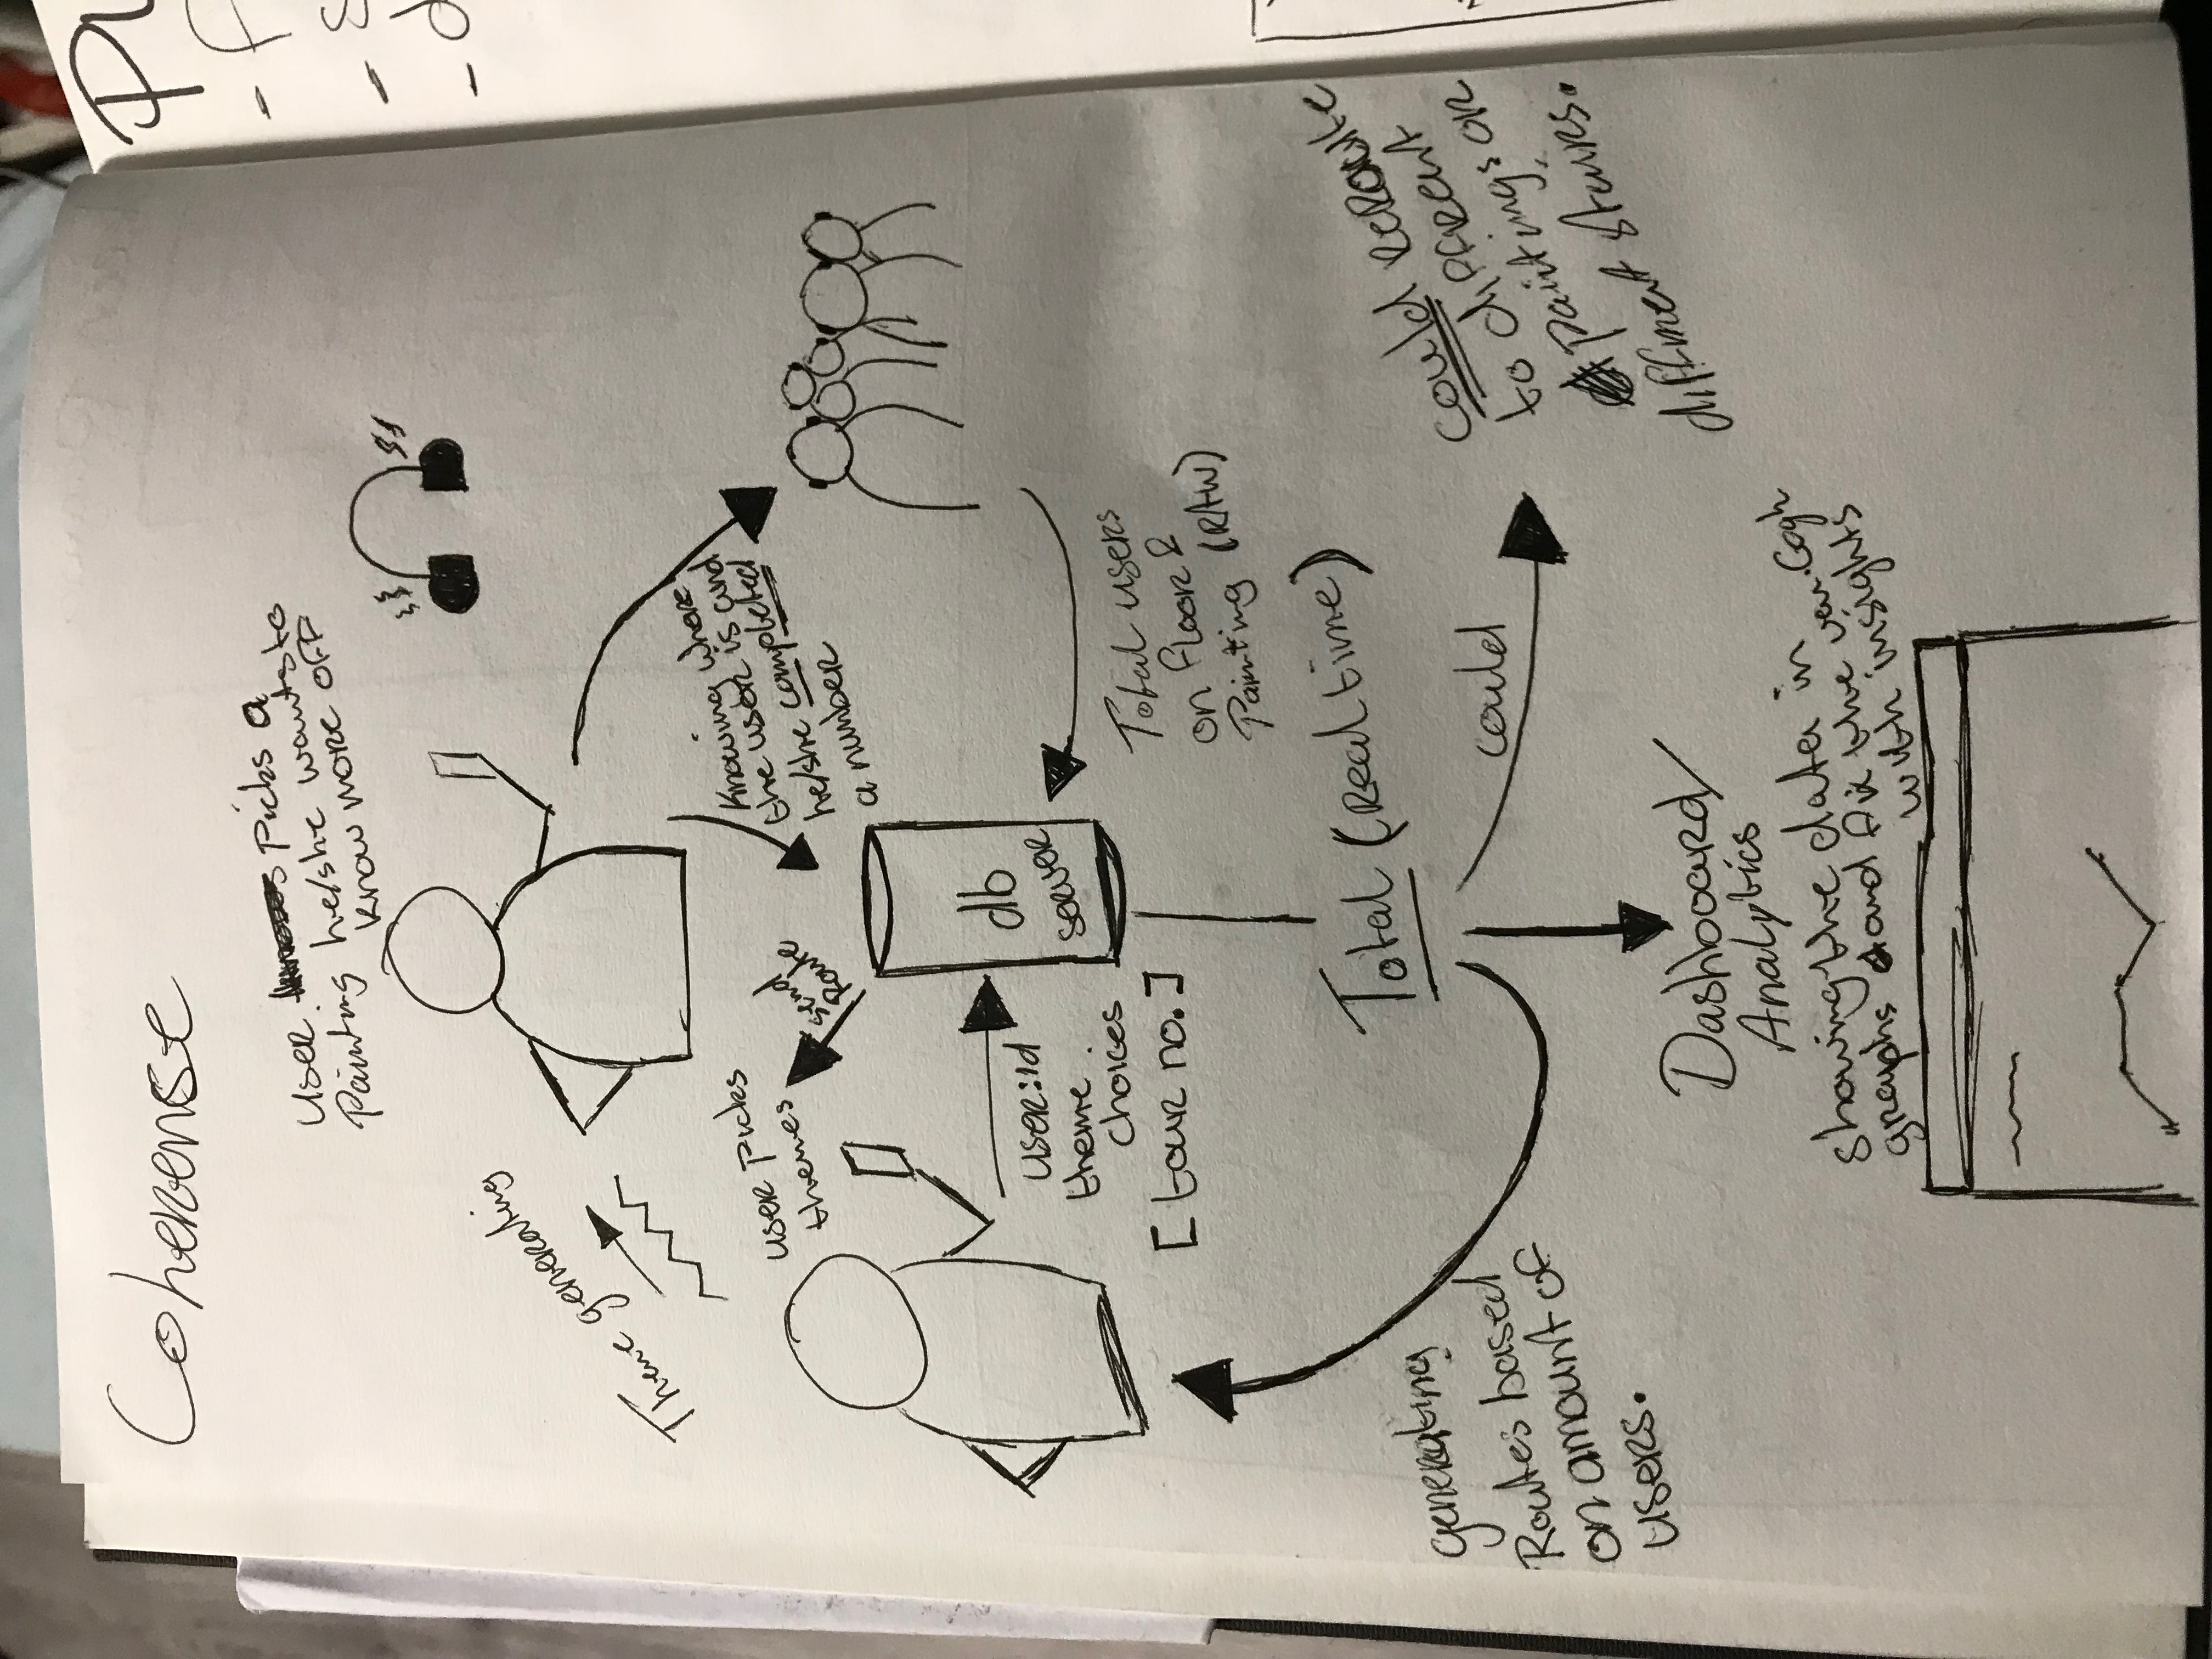 Coherense
User picks a
Painting he/she wants to
know more off
Theme generating
user picks
themes
send
Route
Knowing where
the user is and
he/she completed
a number
db
server
user:id
theme
choices
[tour no.]
Total users
on floor &
Painting (RAW)
Total (Real time)
generating
Routes based
on amount of
users.
could
could reroute
to diffrent
paintings or
diffrent stairs.
Dashboard/
Analytics
showing the data in
graphs and fix the van.Gogh
with insights